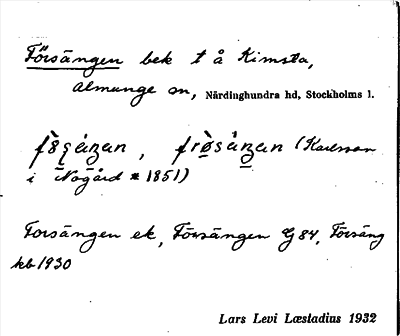 Försängen bek t å Kimsta,
almunge sn, Närdinghundra hd, Stockholms l.
(Karlsson
i Nogård * 1851)
Forsängen ek, Försängen Gg 84, Försäng
kb 1930
Lars Levi Læstadius 1932